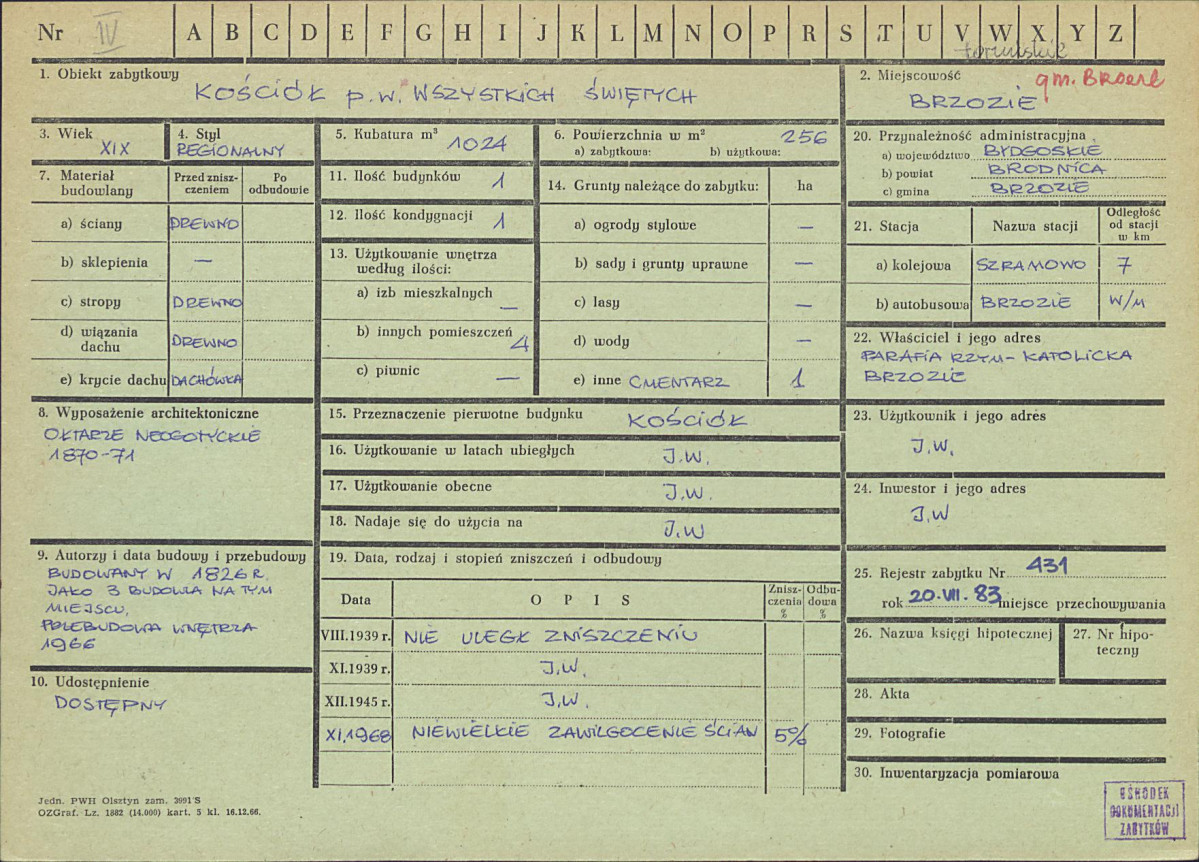 Nr IV A B C D E F G H I J K L M N O P R S T U V W X Y Z
toruńskie
1. Obiekt zabytkowy
KOŚCIÓŁ p.w. WSZYSTKICH ŚWIĘTYCH
2. Miejscowość
gm. Brzozie
BRZOZIE
3. Wiek
XIX
4. Styl
REGIONALNY
5. Kubatura m³ 1024
6. Powierzchnia w m² 256
a) zabytkowa: b) użytkowa:
7. Materiał budowlany
Przed zniszczeniem
Po odbudowie
a) ściany DREWNO
b) sklepienia —
c) stropy DREWNO
d) wiązania dachu DREWNO
e) krycie dachu DACHÓWKA
8. Wyposażenie architektoniczne
OŁTARZE NEOGOTYCKIE
1870-71
9. Autorzy i data budowy i przebudowy
BUDOWANY W 1826 R.
JAKO 3 BUDOWLA NA TYM
MIEJSCU,
PRZEBUDOWA WNĘTRZA
1966
10. Udostępnienie
DOSTĘPNY
11. Ilość budynków 1
12. Ilość kondygnacji 1
13. Użytkowanie wnętrza
według ilości:
a) izb mieszkalnych —
b) innych pomieszczeń 4
c) piwnic —
14. Grunty należące do zabytku: ha
a) ogrody stylowe —
b) sady i grunty uprawne —
c) lasy —
d) wody —
e) inne CMENTARZ 1
15. Przeznaczenie pierwotne budynku KOŚCIÓŁ
16. Użytkowanie w latach ubiegłych J.W.
17. Użytkowanie obecne J.W.
18. Nadaje się do użycia na J.W
19. Data, rodzaj i stopień zniszczeń i odbudowy
Data O P I S Zniszczenia % Odbudowa %
VIII.1939 r. NIE ULEGŁ ZNISZCZENIU
XI.1939 r. J.W.
XII.1945 r. J.W.
XI.1968 NIEWIELKIE ZAWILGOCENIE ŚCIAN 5%
20. Przynależność administracyjna
a) województwo BYDGOSKIE
b) powiat BRODNICA
c) gmina BRZOZIE
21. Stacja Nazwa stacji Odległość od stacji w km
a) kolejowa SZRAMOWO 7
b) autobusowa BRZOZIE W/M
22. Właściciel i jego adres
PARAFIA RZYM-KATOLICKA
BRZOZIE
23. Użytkownik i jego adres
J.W.
24. Inwestor i jego adres
J.W
25. Rejestr zabytku Nr 431
rok 20.VII.83 miejsce przechowywania
26. Nazwa księgi hipotecznej
27. Nr hipoteczny
28. Akta
29. Fotografie
30. Inwentaryzacja pomiarowa
Jedn. PWH Olsztyn zam. 3991 S
OZGraf. Lz. 1882 (14.000) kart. 5 kl. 16.12.66.
OŚRODEK
DOKUMENTACJI
ZABYTKÓW